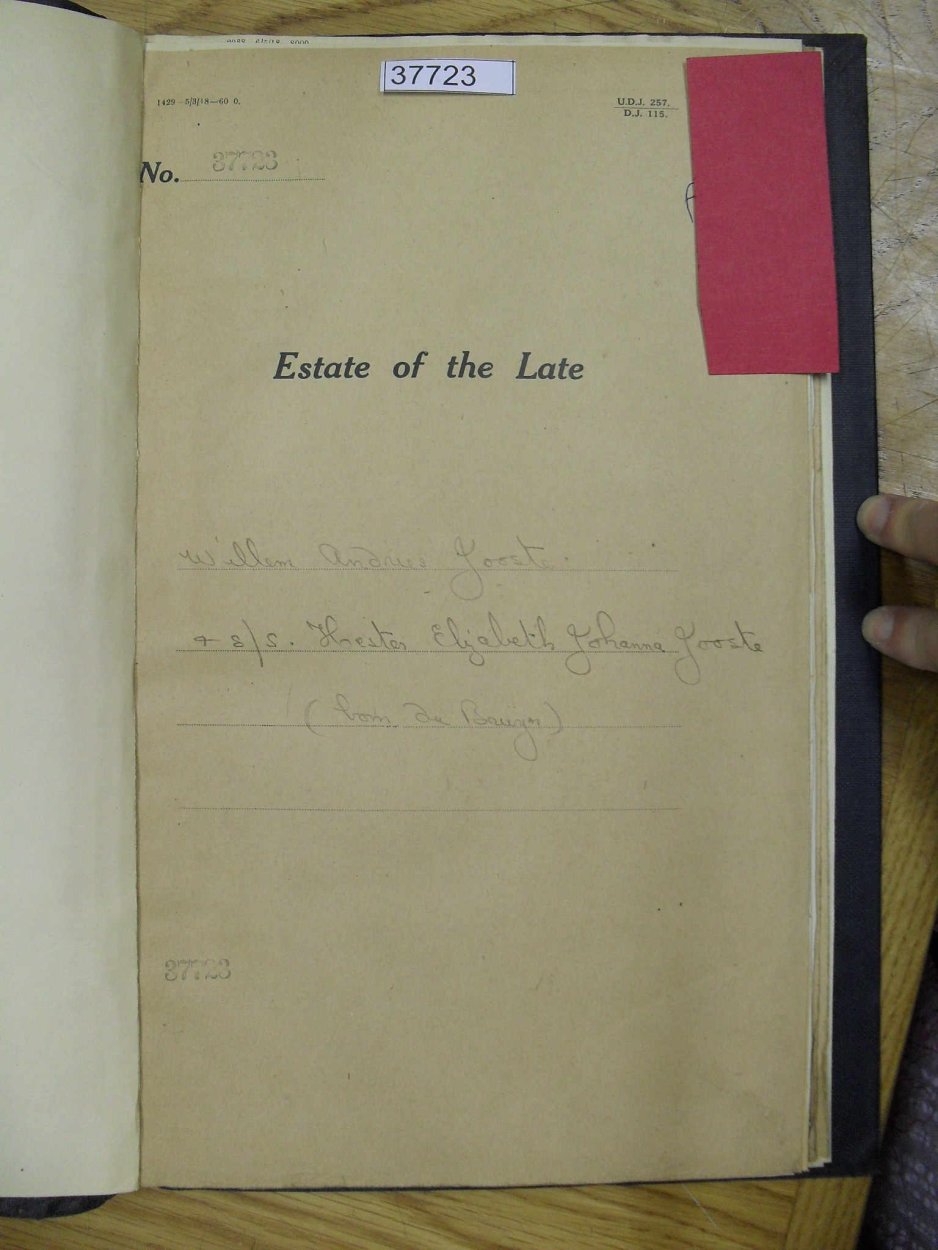 37723
1429—5/3/18—60 0.
U.D.J. 257.
D.J. 115.
No. 37723
Estate of the Late
Willem Andries Jooste.
& s/s. Hester Elizabeth Johanna Jooste
(born du Bruyn)
37723